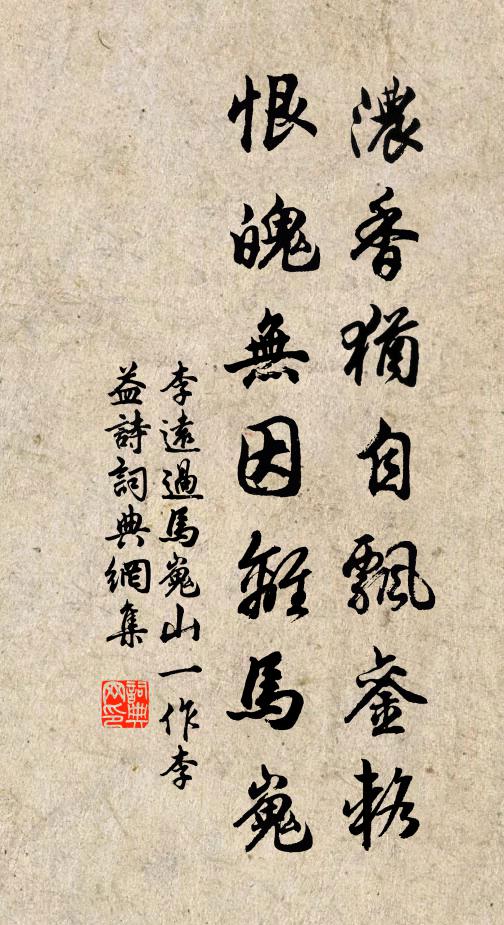 濃香猶自飄銮輅
恨魄無因離馬嵬
李遠過馬嵬山一作李
益詩詞典網集
詞典
网印